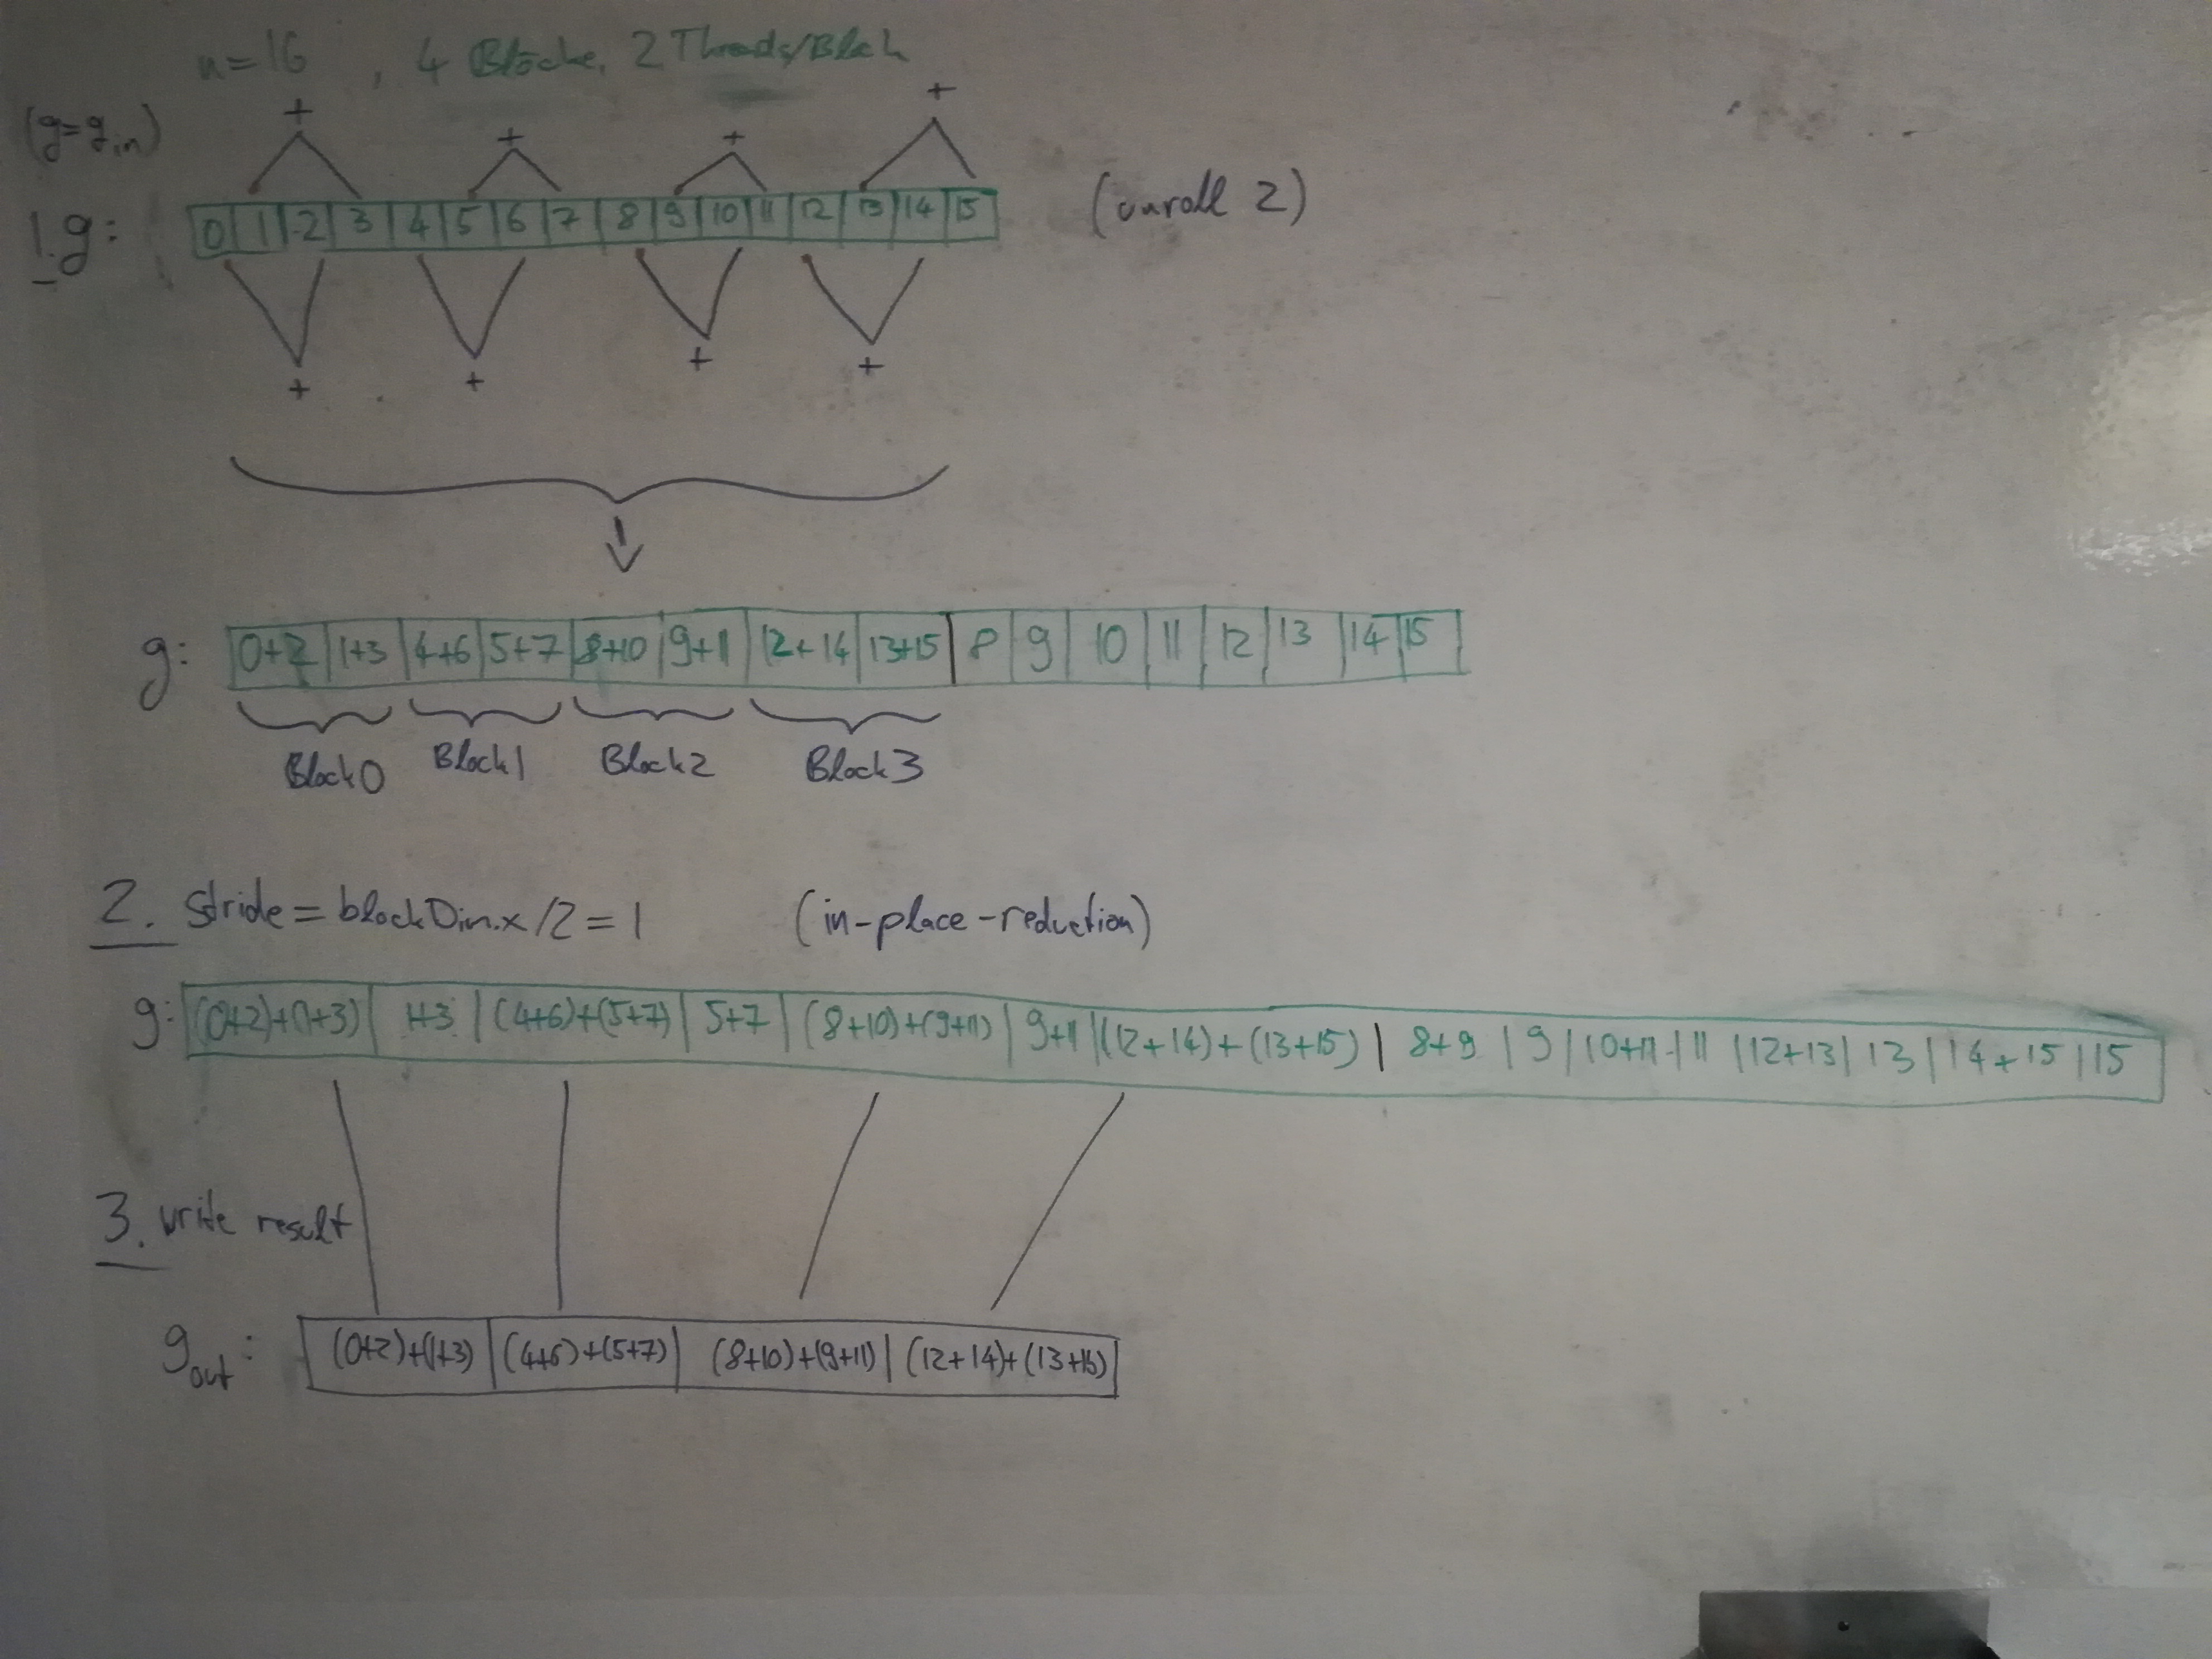 n=16 , 4 Blöcke, 2 Threads/Block
(g=g_in)
+ + + +
1. g: 0 | 1 | 2 | 3 | 4 | 5 | 6 | 7 | 8 | 9 | 10 | 11 | 12 | 13 | 14 | 15 (unroll 2)
+ + + +
g: 0+2 | 1+3 | 4+6 | 5+7 | 8+10 | 9+11 | 12+14 | 13+15 | 8 | 9 | 10 | 11 | 12 | 13 | 14 | 15
Block0 Block1 Block2 Block3
2. Stride = blockDim.x/2 = 1 (in-place-reduction)
g: (0+2)+(1+3) | 1+3 | (4+6)+(5+7) | 5+7 | (8+10)+(9+11) | 9+11 | (12+14)+(13+15) | 8+9 | 9 | 10+11 | 11 | 12+13 | 13 | 14+15 | 15
3. write result
g_out: (0+2)+(1+3) | (4+6)+(5+7) | (8+10)+(9+11) | (12+14)+(13+15)